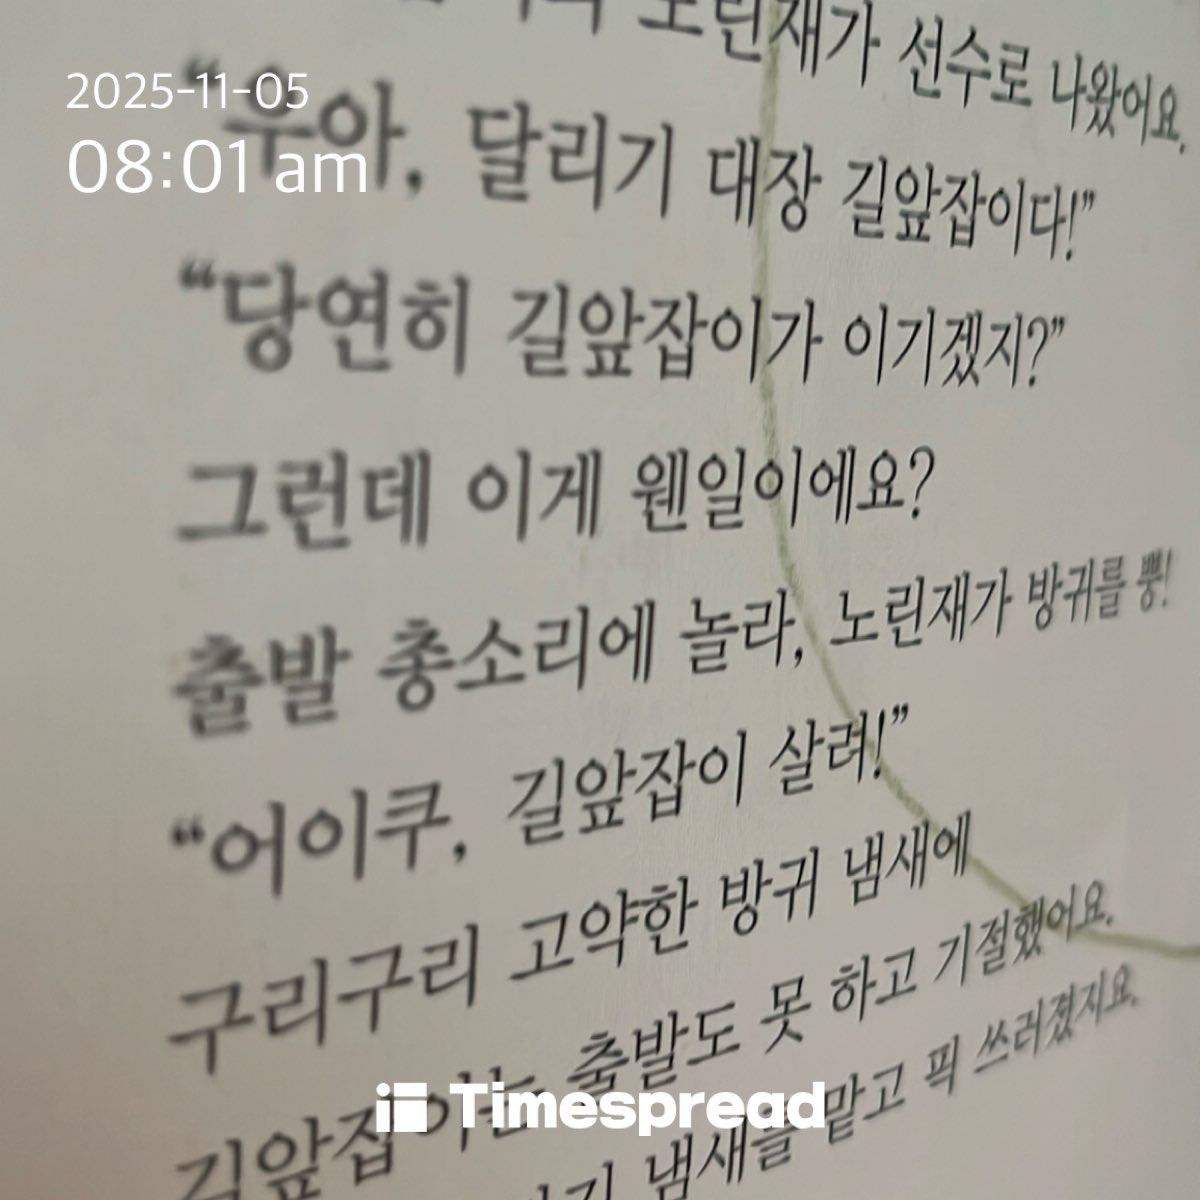 노린재가 선수로 나왔어요.
2025-11-05
08:01 am
“우아, 달리기 대장 길앞잡이다!”
“당연히 길앞잡이가 이기겠지?”
그런데 이게 웬일이에요?
출발 총소리에 놀라, 노린재가 방귀를 뿡!
“어이쿠, 길앞잡이 살려!”
구리구리 고약한 방귀 냄새에
길앞잡이는 출발도 못 하고 기절했어요.
Timespread
냄새를 맡고 픽 쓰러졌지요.